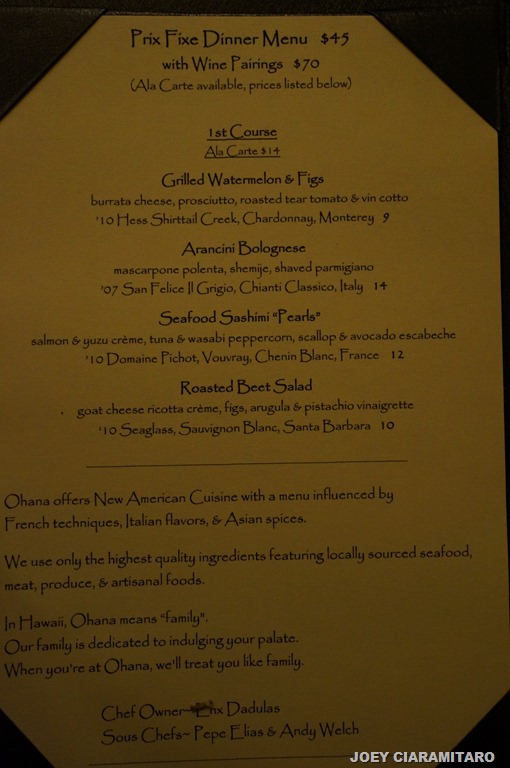 Prix Fixe Dinner Menu $45
with Wine Pairings $70
(Ala Carte available, prices listed below)
1st Course
Ala Carte $14
Grilled Watermelon & Figs
burrata cheese, prosciutto, roasted tear tomato & vin cotto
'10 Hess Shirttail Creek, Chardonnay, Monterey 9
Arancini Bolognese
mascarpone polenta, shemije, shaved parmigiano
'07 San Felice Il Grigio, Chianti Classico, Italy 14
Seafood Sashimi "Pearls"
salmon & yuzu crème, tuna & wasabi peppercorn, scallop & avocado escabeche
'10 Domaine Pichot, Vouvray, Chenin Blanc, France 12
Roasted Beet Salad
goat cheese ricotta crème, figs, arugula & pistachio vinaigrette
'10 Seaglass, Sauvignon Blanc, Santa Barbara 10
Ohana offers New American Cuisine with a menu influenced by
French techniques, Italian flavors, & Asian spices.
We use only the highest quality ingredients featuring locally sourced seafood,
meat, produce, & artisanal foods.
In Hawaii, Ohana means "family".
Our family is dedicated to indulging your palate.
When you're at Ohana, we'll treat you like family.
Chef Owner~ Dadulas
Sous Chefs~ Pepe Elias & Andy Welch
JOEY CIARAMITARO